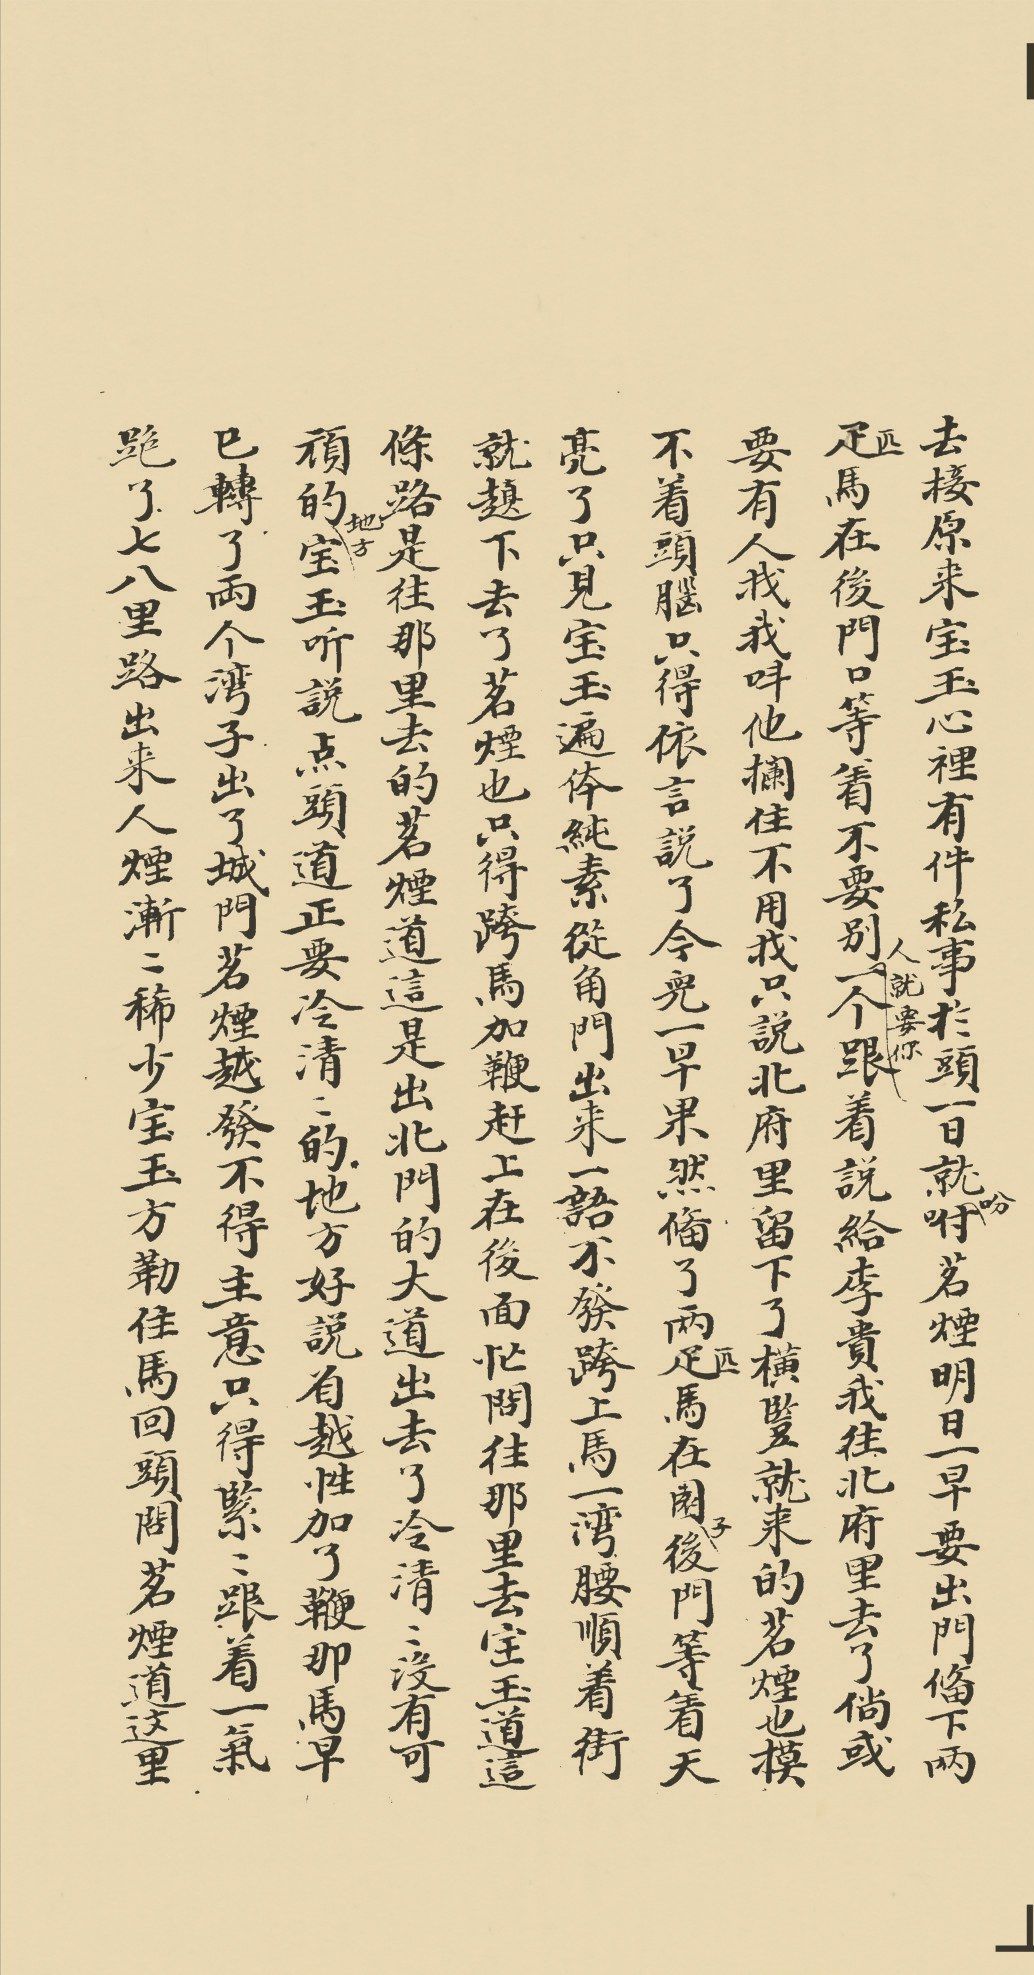 去接原来宝玉心裡有件私事於頭一日就吩咐茗煙明日一早要出門俻下兩
疋匹馬在後門口等着不要别人就要你一个跟着説給李貴我往北府里去了倘或
要有人我我呌他攔住不用我只説北府里留下了横豎就来的茗煙也摸
不着頭腦只得依言説了今兒一早果然俻了兩疋匹馬在園子後門等着天
亮了只見宝玉遍体純素從角門出来一語不發跨上馬一湾腰順着街
就趨下去了茗煙也只得跨馬加鞭赶上在後面忙問往那里去宝玉道這
條路是往那里去的茗煙道這是出北門的大道出去了冷清〻没有可
頑的地方宝玉听説点頭道正要冷清〻的地方好説着越性加了鞭那馬早
已轉了兩个湾子出了城門茗煙越發不得主意只得緊〻跟着一氣
跑了七八里路出来人煙漸〻稀少宝玉方勒住馬回頭問茗煙道这里